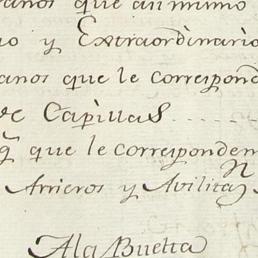 anos que asimismo
io y Extraordinario
anos que le correspond
de Capillas
q̃ que le corresponden
Arrieros y Avilitan
Ala Buelta